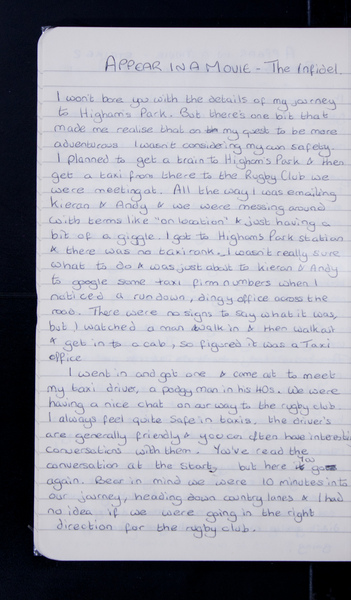 APPEAR IN A MOVIE - The Infidel.
I won't bore you with the details of my journey
to Higham's Park. But there's one bit that
made me realise that on my quest to be more
adventurous I wasn't considering my own safety.
I planned to get a train to Highams Park & then
get a taxi from there to the Rugby Club we
were meeting at. All the way I was emailing
Kieran & Andy & we were messing around
with terms like "on location" & just having a
bit of a giggle. I got to Highams Park station
& there was no taxi rank. I wasn't really sure
what to do & was just about to Kieran & Andy
to google some taxi firm numbers when I
noticed a run down, dingy office across the
road. There were no signs to say what it was,
but I watched a man walk in & then walk out
& get in to a cab, so figured it was a Taxi
office.
I went in and got one & came out to meet
my taxi driver, a podgy man in his 40s. We were
having a nice chat on our way to the rugby club.
I always feel quite safe in taxis, the driver's
are generally friendly & you can often have interesti
conversations with them. You've read the
conversation at the start, but here you go
again. Bear in mind we were 10 minutes into
our journey, heading down country lanes & I had
no idea if we were going in the right
direction for the rugby club.